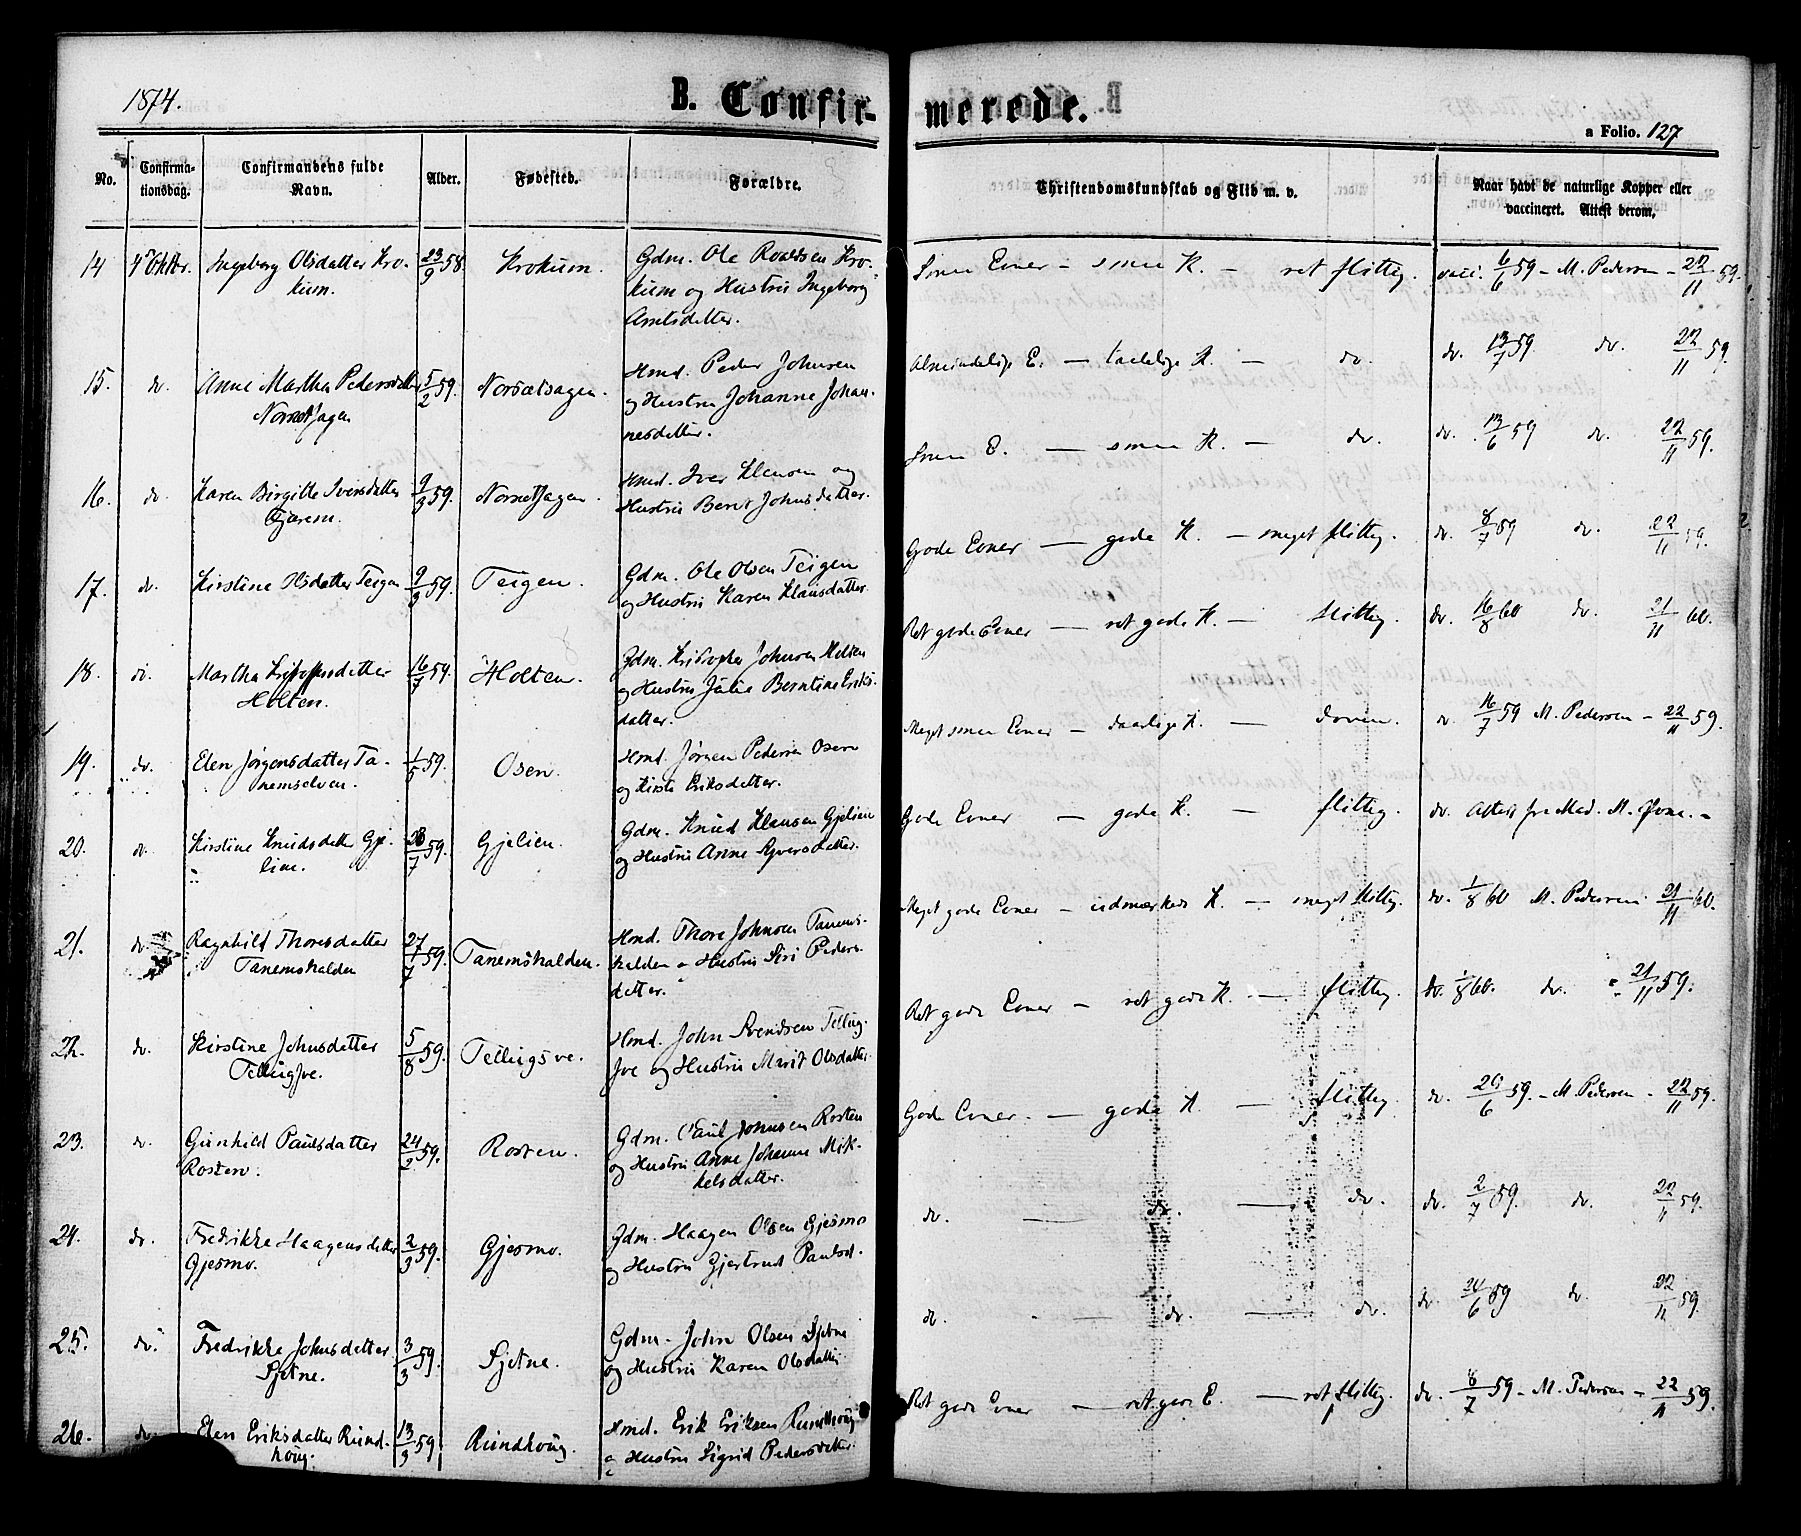 1874.
B. Confir-
merede.
a Folio. 127
No.
Confirma-
tionsdag.
Confirmandens fulde
Navn.
Alder.
Fødested.
Forældre.
Christendomskundskab og Flid m. v.
Naar havt de naturlige Kopper eller
vaccineret. Attest derom.
14 4de Oktbr. Ingeborg Olsdatter Kro-
kum.
23/9 58. Krokum.
Gdm. Ole Roaldsen Kro-
kum og Hustru Ingeborg
Arntsdatter.
Smaa Evner - smaa K. - ret flittig. vacc. 6/6 59 - M. Pedersen - 22/11 59.
15. do. Anne Martha Pedersdatter
Norsetsagen
5/2 59. Norsætsagen.
Hmd. Peder Johnsen
og Hustru Johanne Johan-
nesdatter.
Almindelige E. - taalelige K. - do. do. 13/7 59 do. 22/11 59.
16. do. Karen Birgitte Iversdatter
Tjærem.
9/3 59. Norsetsagen.
Hmd. Iver Klausen og
Hustru Berit Johnsdatter.
Smaa E. - smaa K. - do. do. 13/6 59 do. 22/11 59.
17. do. Kirstine Olsdatter Teigen
9/3 59. Teigen.
Gdm. Ole Olsen Teigen
og Hustru Karen Klausdatter.
Gode Evner - gode K. - meget flittig. do. 8/7 59 do. 22/11 59.
18. do. Martha Kristoffersdatter
Holten.
16/7 59. Holten.
Gdm. Kristopher Johnsen Holten
og Hustru Julie Berntine Eriks-
datter.
Ret gode Evner - ret gode K. - flittig. do. 16/8 60 do. 21/11 60.
19. do. Elen Jørgensdatter Ta-
nemselven.
1/5 59. Osen.
Hmd. Jørgen Pedersen Osen
og Kirsti Eriksdatter.
Meget smaa Evner - daarlige K. - doven. do. 16/7 59 M. Pedersen - 22/11 59.
20. do. Kirstine Knudsdatter Gje-
lien.
28/7 59. Gjelien.
Gdm. Knud Klausen Gjelien
og Hustru Anne Syversdatter.
Gode Evner - gode K. - flittig. do. Attest fra Mad. M.
21. do. Ragnhild Thoresdatter
Tanemskalden
27/7 59. Tanemskalden.
Hmd. Thore Johnsen Tanems-
kalden og Hustru Siri Peders-
datter.
Meget gode Evner - udmærkede K. - meget flittig. do. 1/8 60 M. Pedersen 21/11 60.
22. do. Kirstine Johnsdatter
Tellugsve.
5/8 59. Tellugsve.
Hmd. John Svendsen Tellug-
sve og Hustru Marit Olsdatter.
Ret gode Evner - ret gode K. - flittig. do. 1/8 60. do. 21/11 59.
23. do. Gunhild Paulsdatter
Rosten.
24/2 59. Rosten.
Gdm. Paul Johnsen Rosten
og Hustru Anne Johanna Mik-
kelsdatter.
Gode Evner. - gode K. - flittig. do. 29/6 59. - M. Pedersen - 22/11 59.
24. do. Fredrikke Haagensdatter
Gjesmo.
2/3 59. Gjesmo.
Gdm. Haagen Olsen Gjesmo
og Hustru Gjertrud Paulsd.
do. - do. - do. do. 2/7 59. do. 22/11 59.
25. do. Fredrikke Johnsdatter
Sjetne.
3/3 59. Sjetne.
Gdm. John Olsen Sjetne
og Hustru Karen Olsdatter
do. - do. - do. do. 24/6 59 do. 22/11 59.
26. do. Elen Eriksdatter Rund-
houg.
13/3 59. Rundhoug.
Hmd. Erik Eriksen Rundhoug
og Hustru Sigrid Pedersdatter.
Ret gode Evner - ret gode E. - ret flittig. do. 8/7 59 - M. Pedersen - 22/11 59.